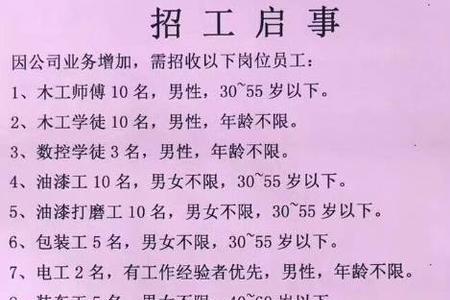 招工启事
因公司业务增加，需招收以下岗位员工：
1、木工师傅10名，男性，30~55岁以下。
2、木工学徒10名，男性，年龄不限。
3、数控学徒3名，男性，年龄不限。
4、油漆工10名，男女不限，30~55岁以下。
5、油漆打磨工10名，男女不限，30~55岁以下。
6、包装工5名，男女不限，30~55岁以下。
7、电工2名，有工作经验者优先，男性，年龄不限。